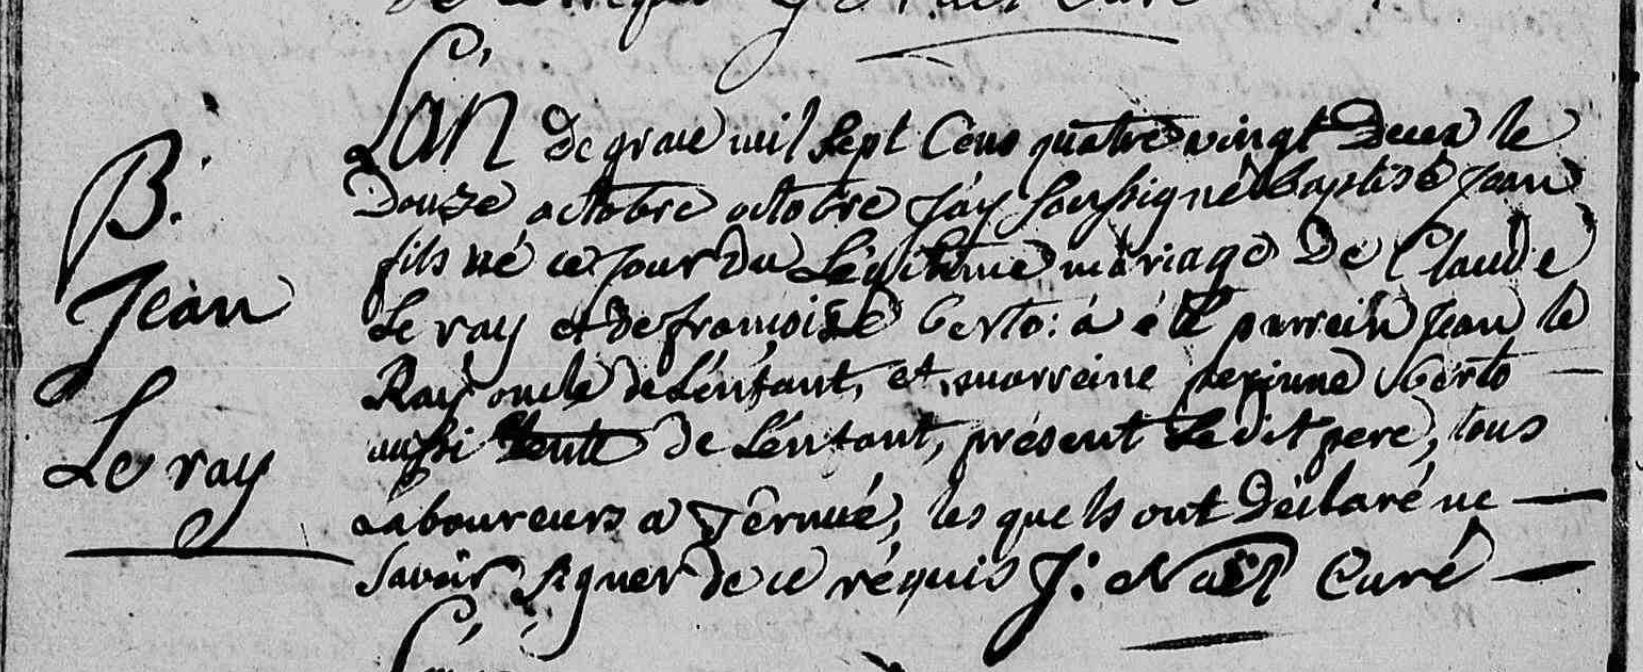 B.
Jean
Le ray
L'an de grace mil sept Cens quatre vingt deux le
Douze octobre octobre J'ay soussigné baptisé Jean
fils né ce jour du Légitime mariage De Claude
Le ray et de françoise berto: a été parrein Jean le
Ray oncle de L'enfant, et marreine perinne berto
aussi tente de L'enfant, présent Le dit pere, tous
Laboureurs a, les quels ont Déclaré ne
savoir signer de ce réquis J: Noël Curé